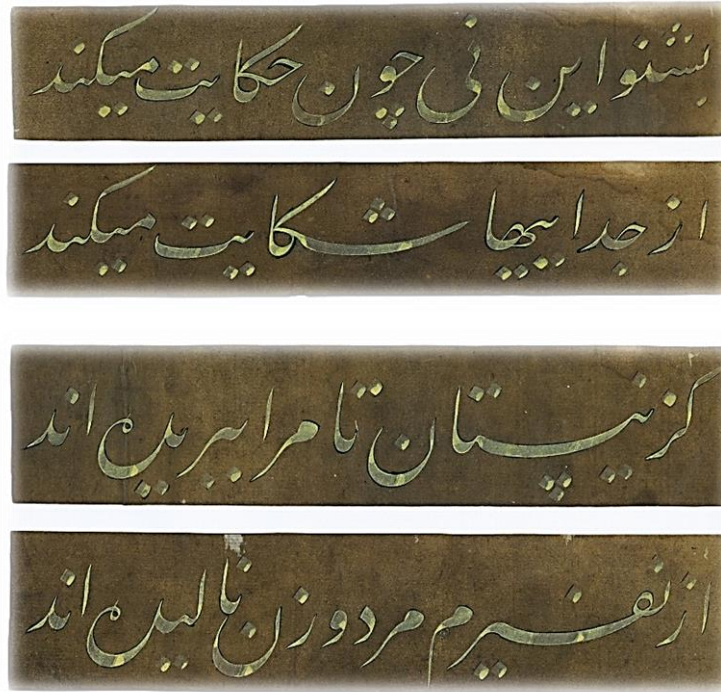 بشنو این نی چون حکایت میکند
از جداییها شکایت میکند
کز نیستان تا مرا ببریده اند
از نفیرم مرد و زن نالیده اند